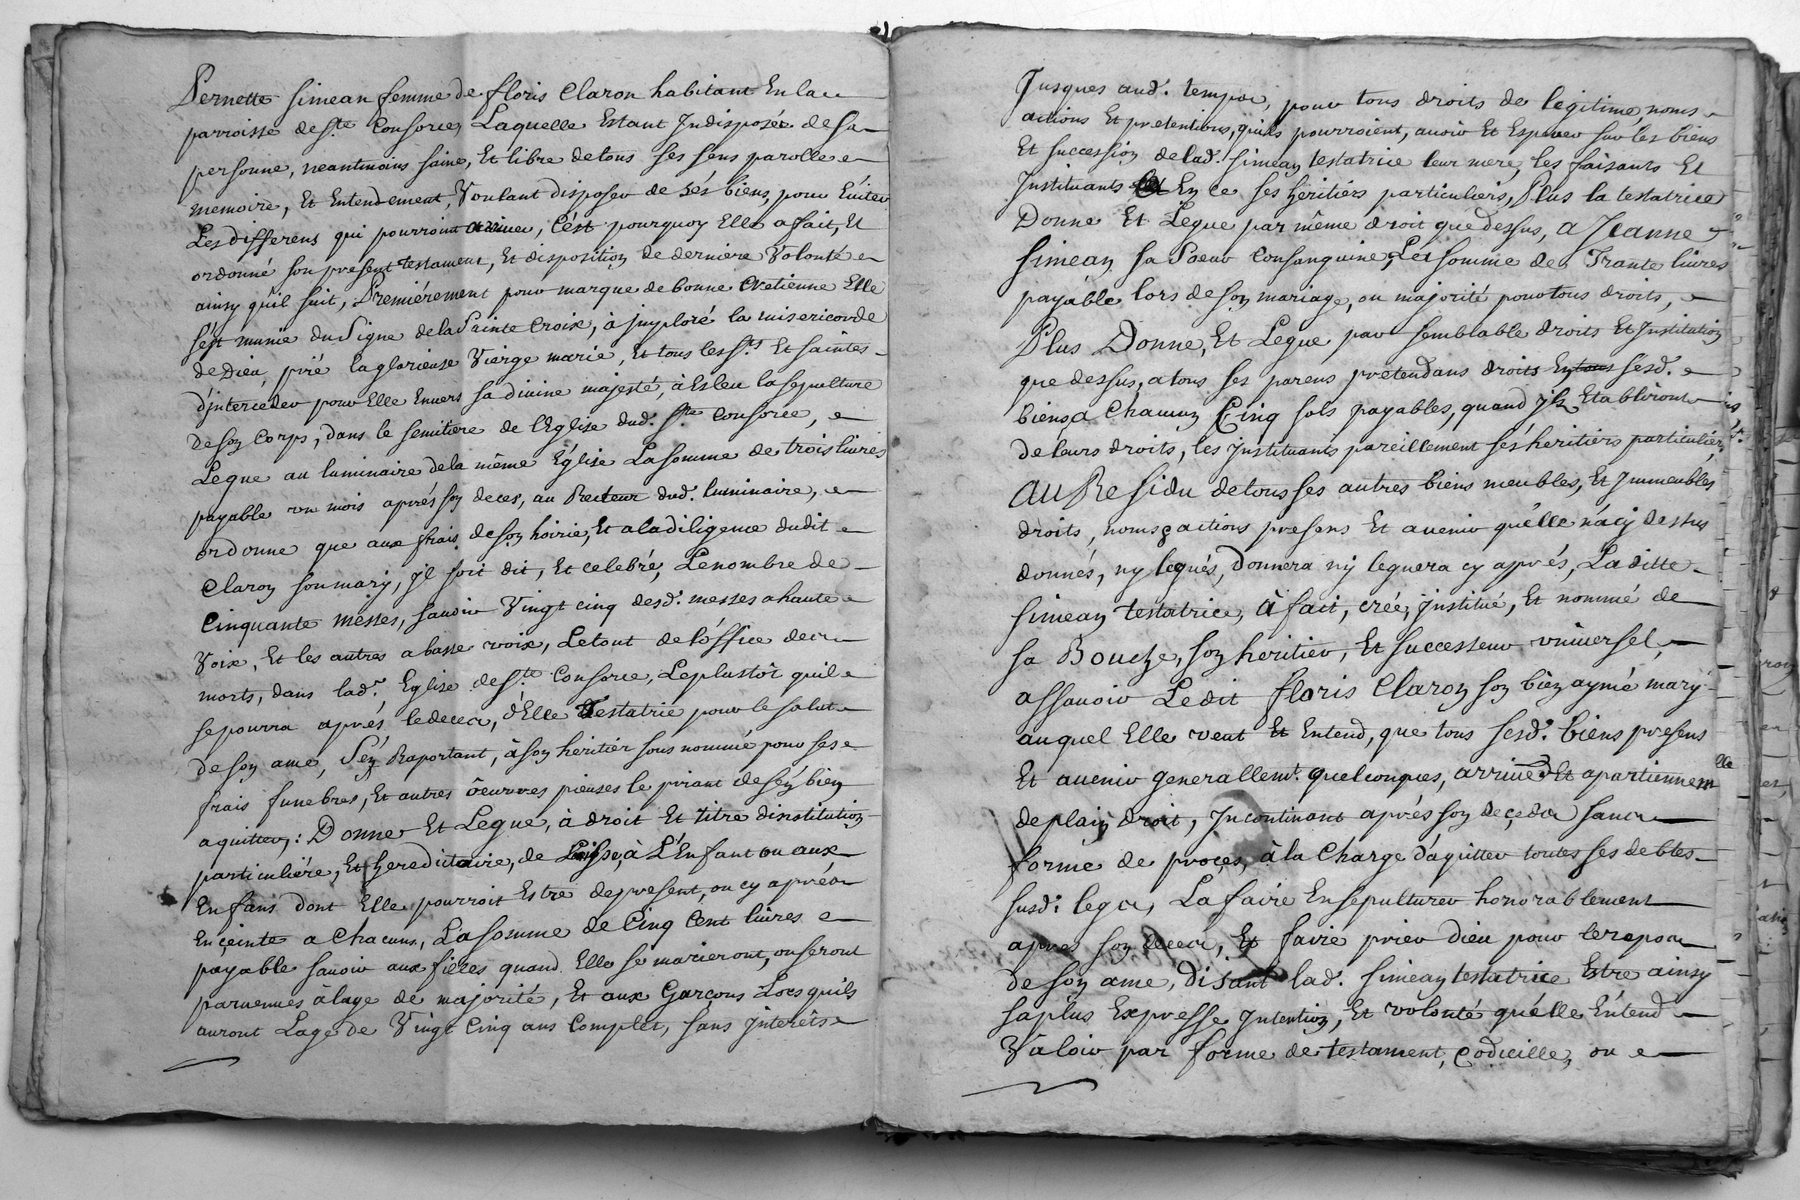 Pernette simean femme de floris Claron habitant En la
parroisse de Ste Consorce, Laquelle Estant Indisposée de sa
personne, neantmoins saine, Et libre de tous ses sens parolle
memoire, Et Entendement, Voulant disposer de sés biens, pour Eúiter
Les differens qui pourroint, C'ést pourquoy Elle a fait, Et
ordonné son présent testament, Et disposition de derniere Volonté
ainsy qu'il suit, Premiérement pour marque de bonne Cretienne Elle
s'ést munie du Signe de la Sainte Croix, à jmploré la misericorde
de Dieu, prié la glorieuse Vierge marie, Et tous les Sts Et saintes
d'jnterceder pour Elle Enuers sa diuine majesté, à Esleu la sepulture
de son Corps, dans le semitiere de l'Eglise dud. Ste Consorce,
Legue au luminaire de la même Église La somme de trois liures
payable vn mois aprés son deces, au Recteur dud. luminaire,
ordonne que aux frais de son hoirie, Et a la diligence dudit
Claron son mary, jl soit dit, Et celebré, Le nombre de
Cinquante messes, sauoir Vingt cinq desd. messes a haute
Voix, Et les autres a basse voix, Le tout de l'óffice des
morts, dans lad. Eglise de Ste Consorce, Le plustôt quil
se pourra aprés le deces, d'Elle Testatrie pour le salut
de son ame, S'én Raportant, à son héritiér sous nommé pour ses
frais funebres, Et autres ôeuvres pieuses le priant de s'éy bien
aquitter: Donne Et Legue, à droit Et titre dinstitution
particuliére, Et hereditaire, de à L'Enfant ou aux
Enfans dont Elle pourroit Estre de present, ou cy aprés
Enceinte a Chacuns, La somme de Cinq Cent liures
payable sauoir aux filles quand Elle se marieront, ou seront
paruenues à lage de majorité, Et aux Garçons Lors quils
auront Lage de Vingt Cinq ans Complet, sans jnteréts
Jusques aud. temps, pour tous droits de legitime, noms
actions Et pretentions, quils pourroient, auoir Et Esperer sur les biens
Et succession de lad. simean testatrice leur mere, les faisants Et
Jnstituants En ce ses héritiérs particuliers, Plus la testatrice
Donne Et Legue par même droit que dessus, a Jeanne
simean sa Soeur Consanguine, La somme de Trante liures
payable lors de son mariage, ou majorité pour tous droits,
Plus Donne, Et Legue par semblable droits Et Jnstitution
que dessus, a tous ses parens prétendans droits En tous sesd.
biens a Chacun Cinq sols payables, quand jls Etabliront
de leurs droits, les jnstituants pareillement sés heritiérs particuliérs
AU Residu de tous ses autres biens meubles, Et jmmeubles
droits, noms, actions presens Et auenir qu'elle n'á cy dessus
donnés, ny legués, donnera ny leguera cy aprés, La ditte
simean testatrice, à fait, créé, jnstitué, Et nommé de
sa Bouche, son heritier, Et successeur vniuersel,
assauoir Ledit floris Claron son bien aymé mary
auquel Elle veut Et Entend, que tous sesd. biens presens
Et auenir generallemt. quelconques, arriue Et apartiennent
de plain droit, Jncontinant aprés son decedz sans
forme de proçes, à la Charge d'aquitter toutes ses debtes
susd. legs, La faire Ensepulturer honorablement
apres son deces, Et faire prier dieu pour le repos
de son ame, disant lad. simean testatrice Estre ainsy
sa plus Expresse jntention, Et volonté qu'élle Entend
Valoir par forme de testament, Codicille, ou